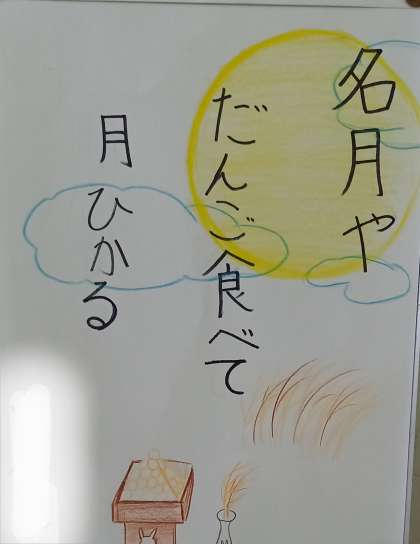 名月や
だんご食べて
月ひかる